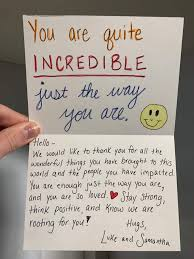 You are quite
INCREDIBLE
just the way
you are.
Hello -
We would like to thank you for all the
wonderful things you have brought to this
world and the people you have impacted.
You are enough just the way you are,
and you are so loved. Stay strong,
think positive, and know we are
rooting for you!
Hugs,
Luke and Samantha